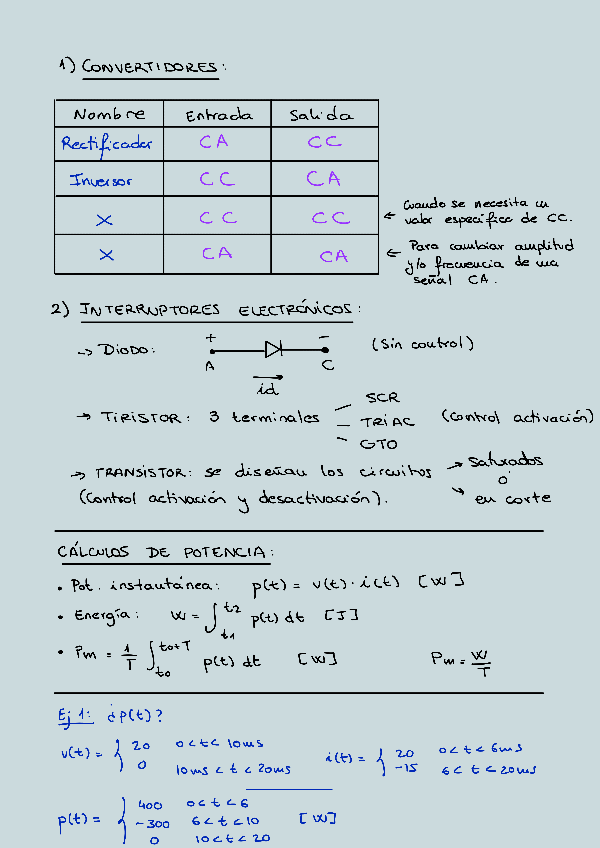 1) CONVERTIDORES:
Nombre Entrada Salida
Rectificador CA CC
Inversor CC CA
X CC CC ← Cuando se necesita un valor específico de CC.
X CA CA ← Para cambiar amplitud y/o frecuencia de una señal CA.
2) INTERRUPTORES ELECTRÓNICOS:
→ DIODO: + - (Sin control)
A C
id
→ TIRISTOR: 3 terminales — SCR
— TRIAC (Control activación)
— GTO
→ TRANSISTOR: se diseñan los circuitos → saturados
o
(Control activación y desactivación). → en corte
CÁLCULOS DE POTENCIA:
• Pot. instantánea: p(t) = v(t) · i(t) [W]
• Energía: W = ∫_{t1}^{t2} p(t) dt [J]
• Pm = 1/T ∫_{to}^{to+T} p(t) dt [W] Pm = W/T
Ej 1: ¿p(t)?
v(t) = { 20 0<t<10ms
0 10ms<t<20ms
i(t) = { 20 0<t<6ms
-15 6<t<20ms
p(t) = { 400 0<t<6
-300 6<t<10 [W]
0 10<t<20